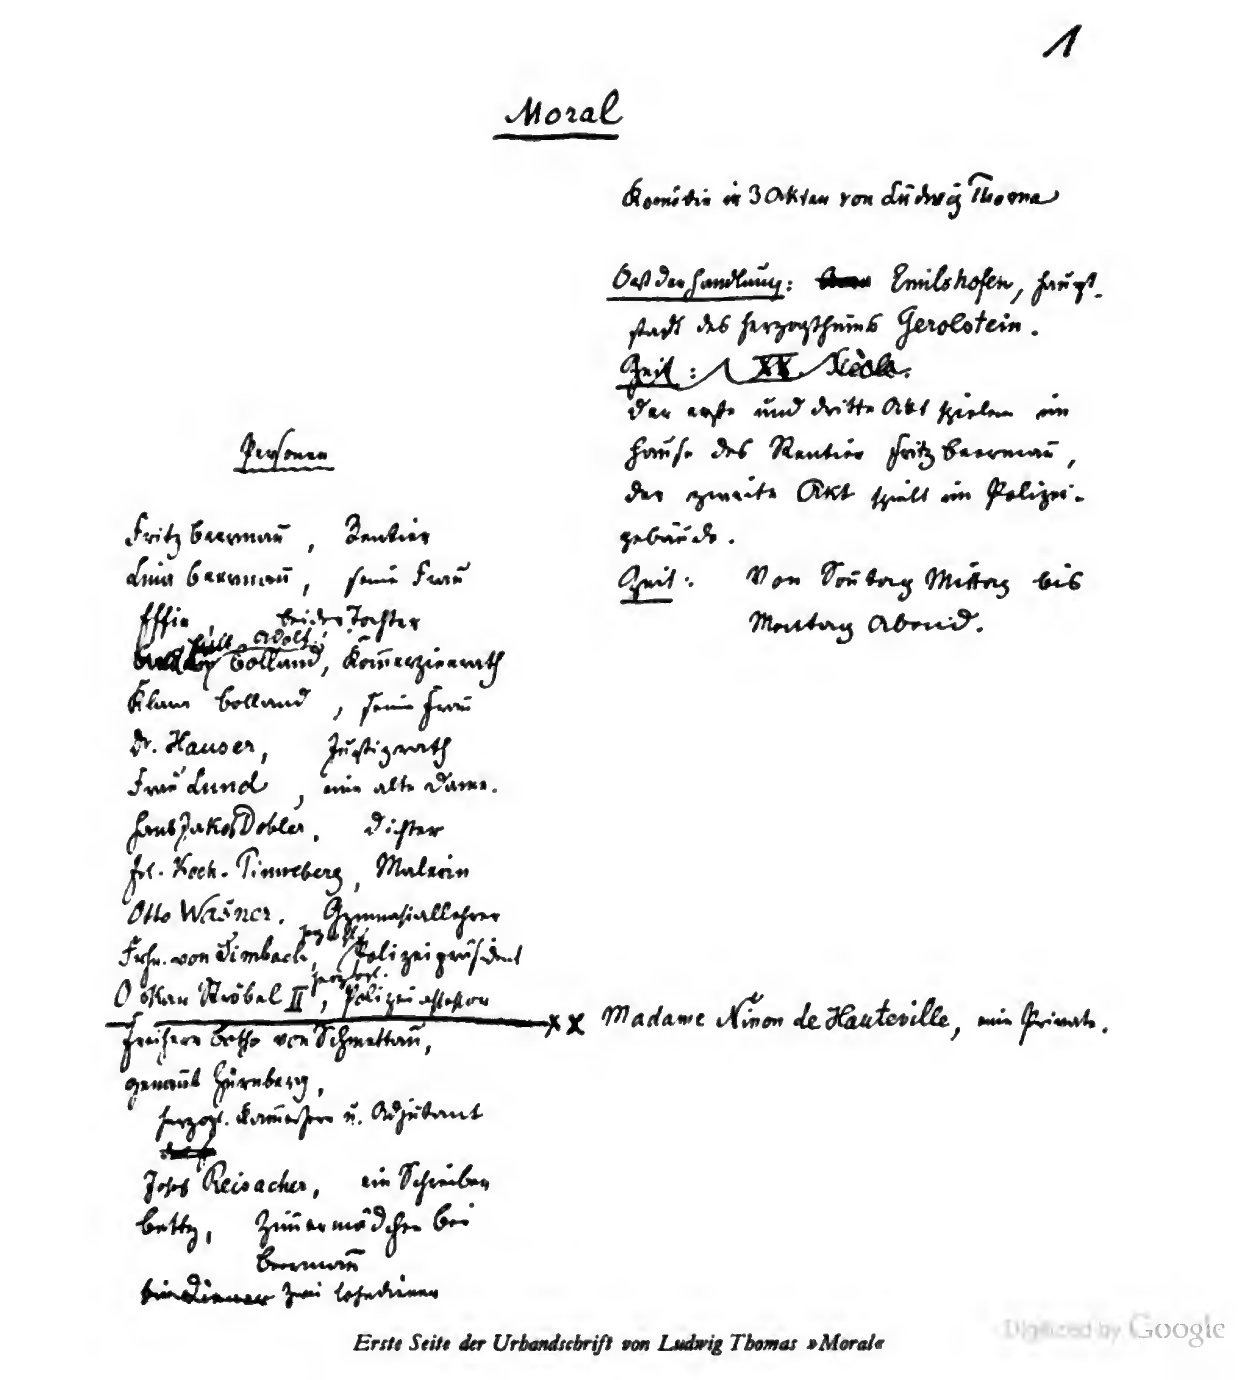 1
Moral
Komödie in 3 Akten von Ludwig Thoma
Ort der Handlung: Emilshofen, Haupt-
stadt des Herzogthums Gerolstein.
Zeit:
Der erste und dritte Akt spielen im
Hause des Rentier Fritz Beermañ,
der zweite Akt spielt im Polizei-
gebäude.
Zeit: Von Soñtag Mittag bis
Montag Abend.
Personen
Fritz Beermañ, Rentier
Lina Beermañ, seine Frau
Effie, beider Tochter
Adolf
Bolland, Kom̄erzienrath
Klara Bolland, seine Frau
Dr. Hauser, Justizrath
Frau Lund, eine alte Dame.
Hans Jakob Dobler, Dichter
Frl. Koch-Pinneberg, Malerin
Otto Wasner. Gymnasiallehrer
herzogl.
Frhr. von Simbach, Polizeipräsident
herzogl.
Oskar Ströbel II, Polizeiassessor
xx Madame Ninon de Hauteville, eine Private.
Freiherr Botho von Schmettau,
genañt Zürnberg,
herzogl. Kam̄erherr u. Adjutant
Josef Reisacher, ein Schreiber
Betty, Zim̄ermädchen bei
Beermañ
Ein Diener zwei Lohndiener
Erste Seite der Urhandschrift von Ludwig Thomas »Moral«
Digitized by Google